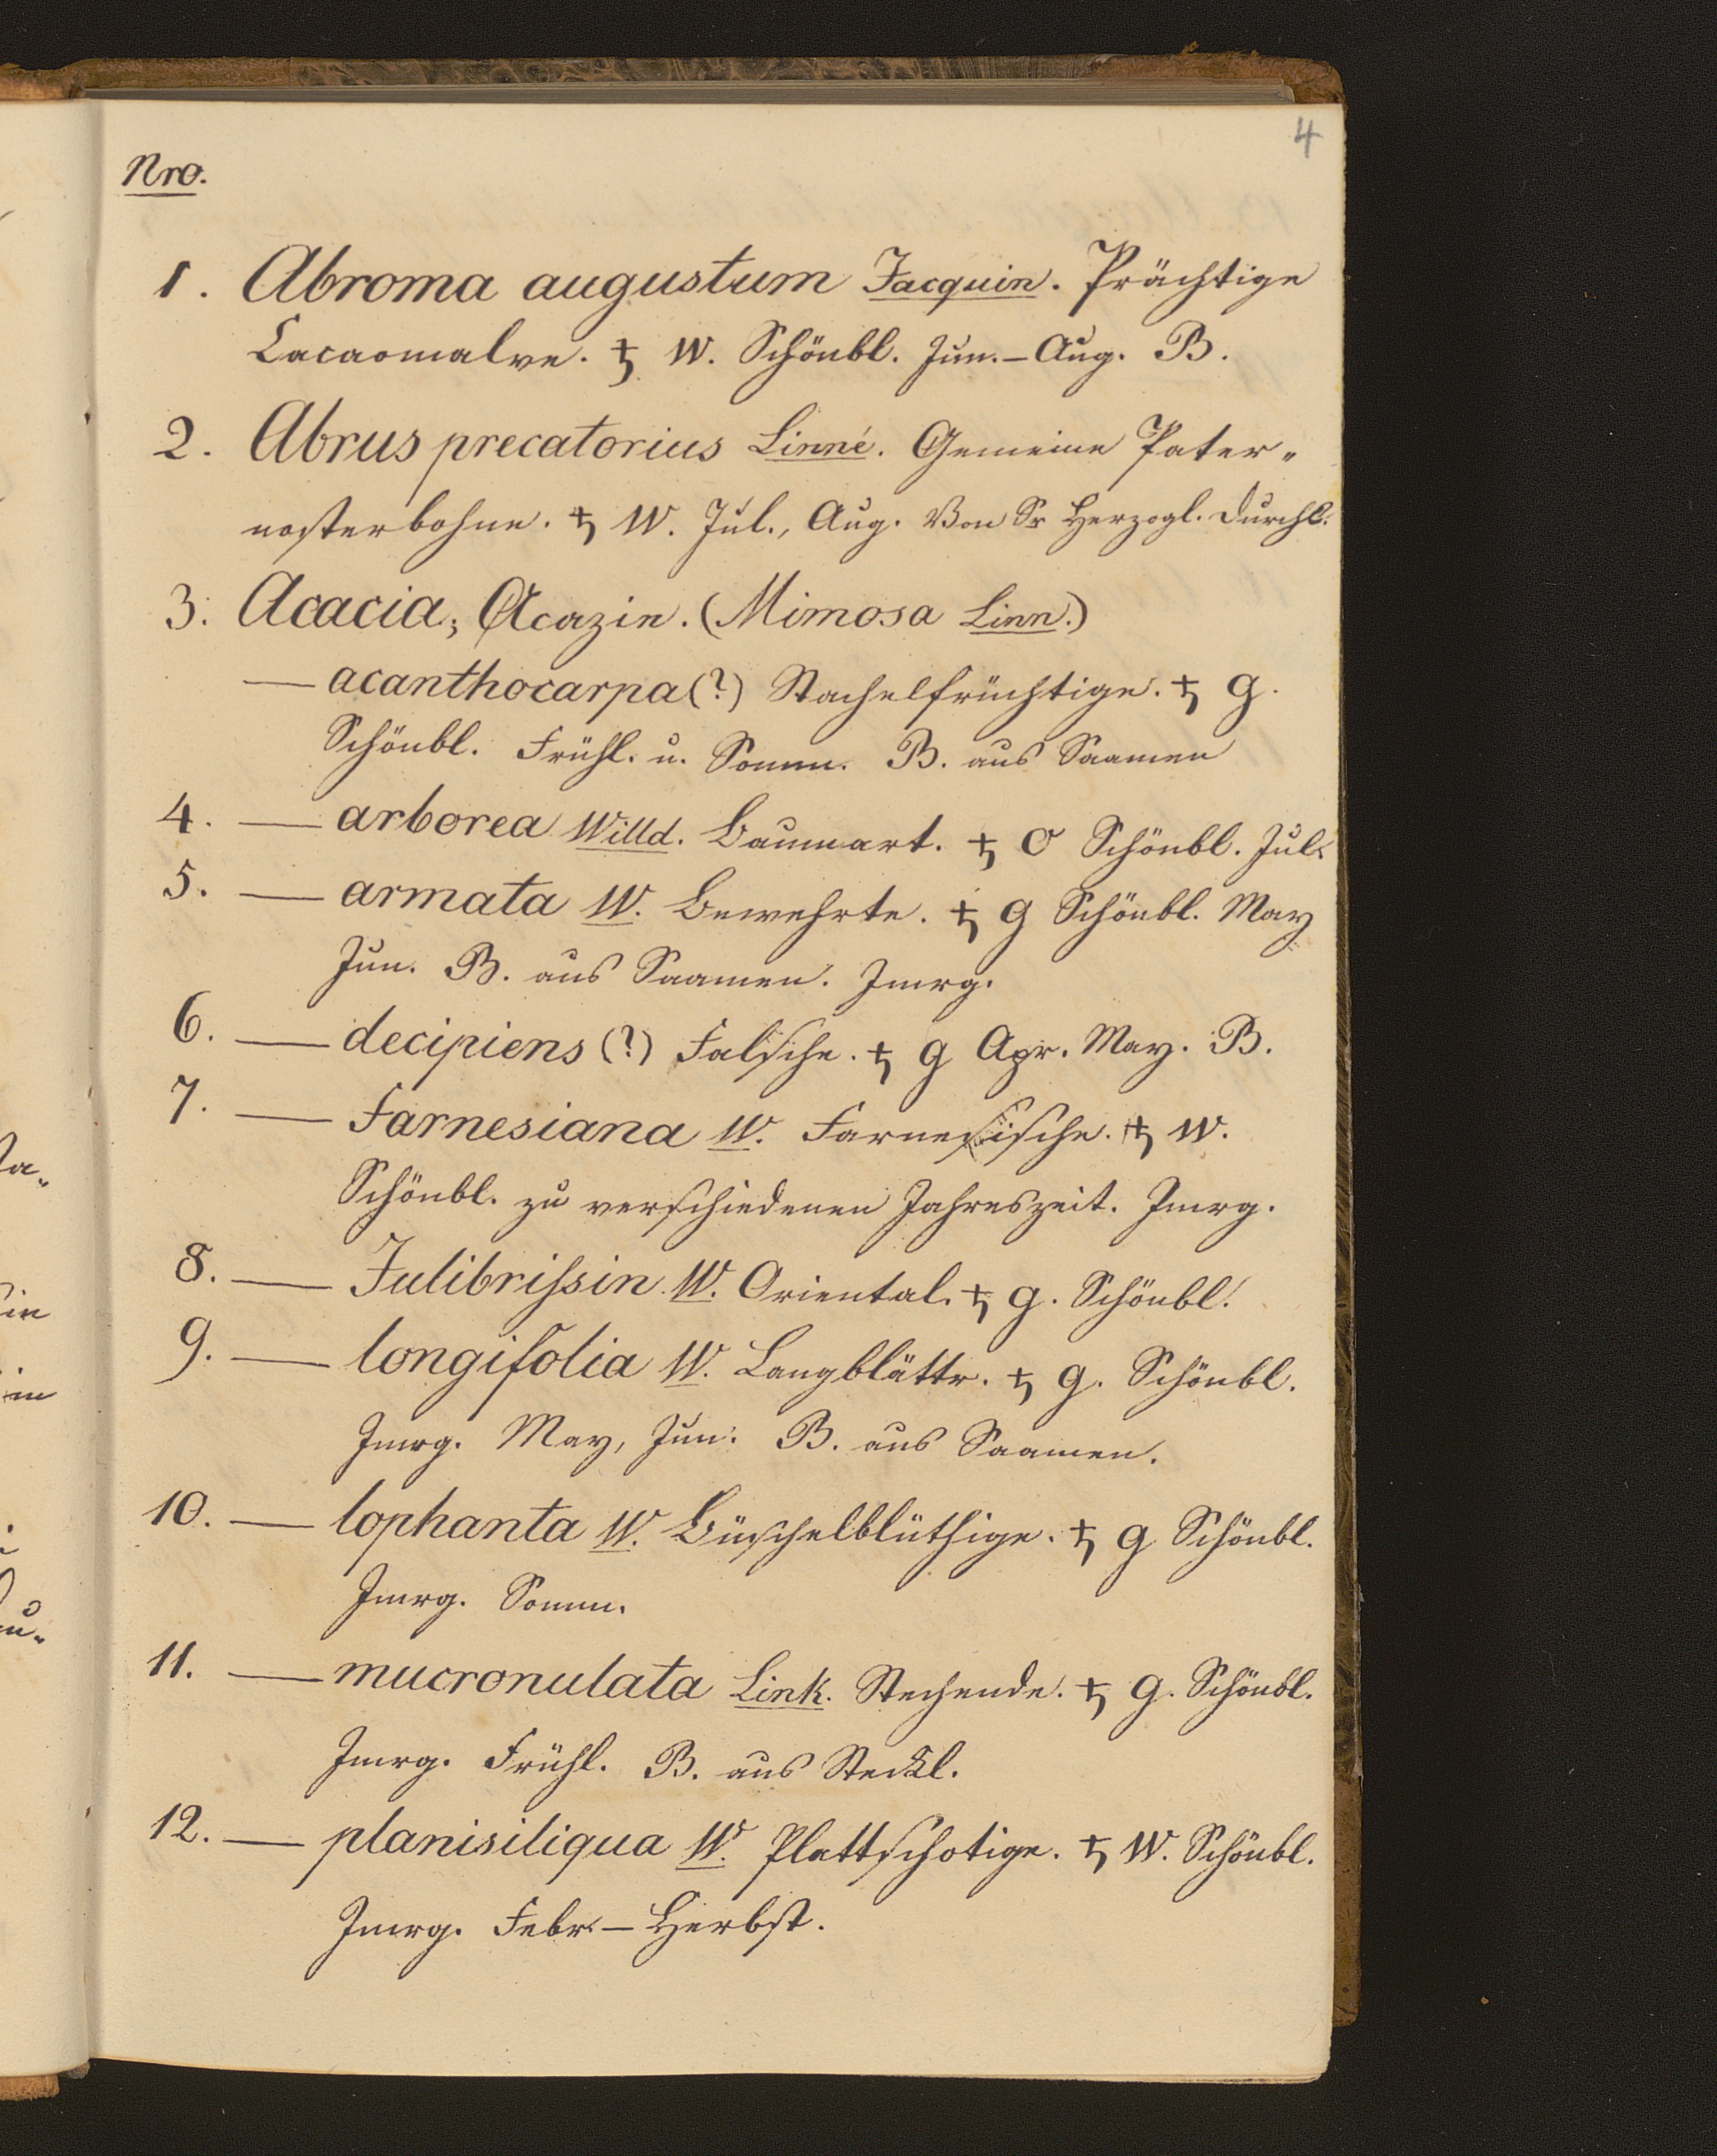 4
Nro.
1. Abroma augustum Jacquin. Prächtige
Cacaomalve. ♄ W. Schönbl. Jun. – Aug. B.
2. Abrus precatorius Linné. Gemeine Pater„
nosterbohne. ♄ W. Jul., Aug. Von Sr Herzogl. Durchl.
3. Acacia; Acazie. (Mimosa Linn.)
— acanthocarpa (?) Stachelfrüchtige. ♄ g.
Schönbl. Frühl. u. Somm. B. aus Saamen
4. — arborea Willd. Baumart. ♄ O Schönbl. Jul.
5. — armata W. Bewehrte. ♄ g Schönbl. May
Jun. B. aus Saamen. Jmrg.
6. — decipiens (?) Falsche. ♄ g Apr. May. B.
7. — Farnesiana W. Farnesische. ♄ W.
Schönbl. zu verschiedenen Jahreszeit. Jmrg.
8. — Julibrißin W. Oriental. ♄ g. Schönbl.
9. — longifolia W. Langblättr. ♄ g. Schönbl.
Jmrg. May, Jun. B. aus Saamen.
10. — lophanta W. Büschelblüthige. ♄ g Schönbl.
Jmrg. Somm.
11. — mucronulata Link. Stechende. ♄ g. Schönbl.
Jmrg. Frühl. B. aus Steckl.
12. — planisiliqua W. Plattschotige. ♄ W. Schönbl.
Jmrg. Febr. – Herbst.